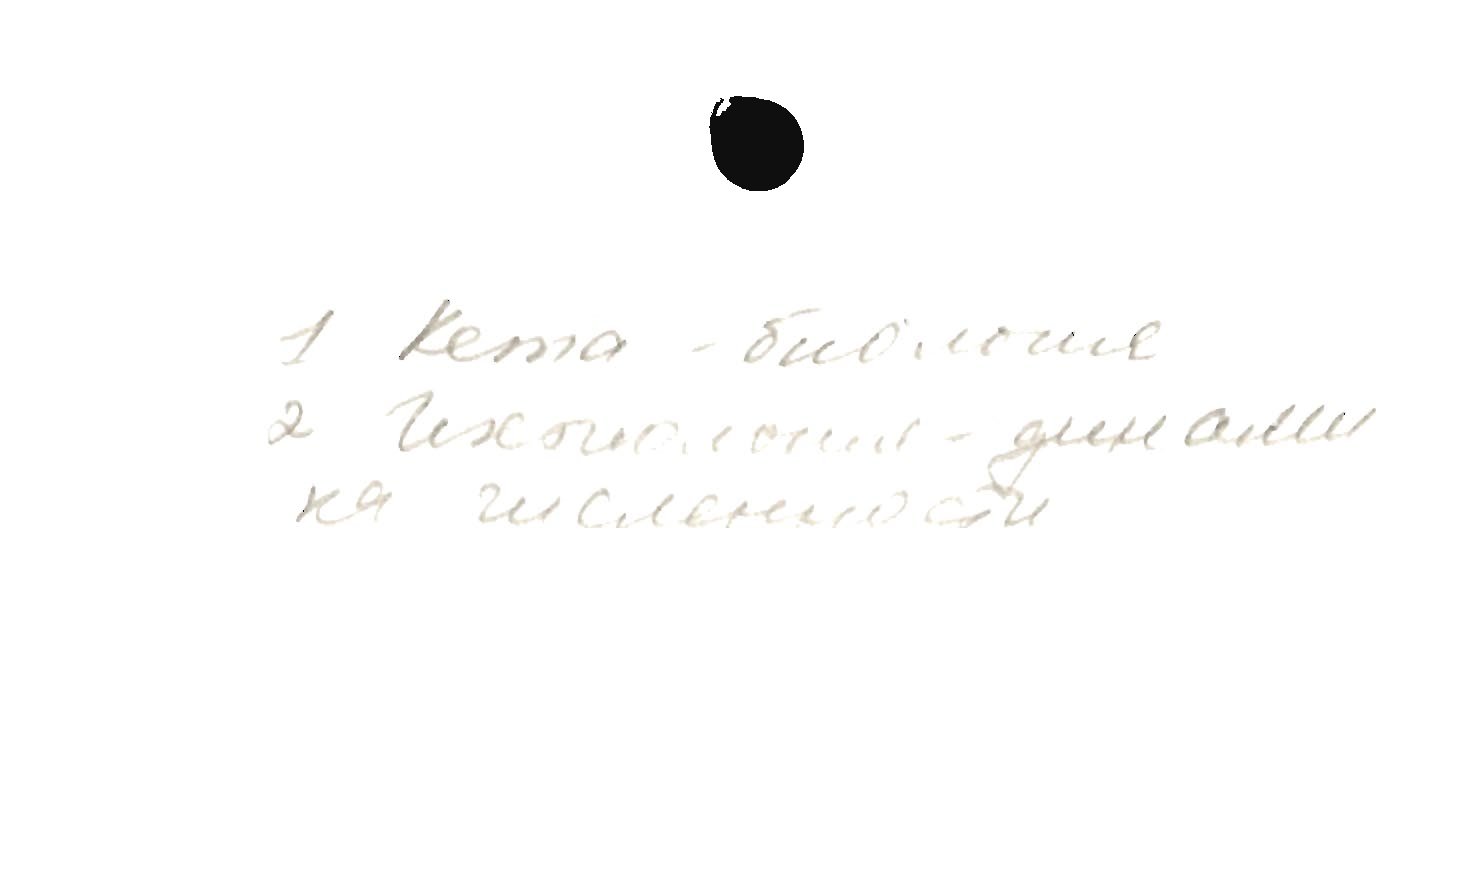 1 Кета - биология
2 Ихтиология - динами
ка численности